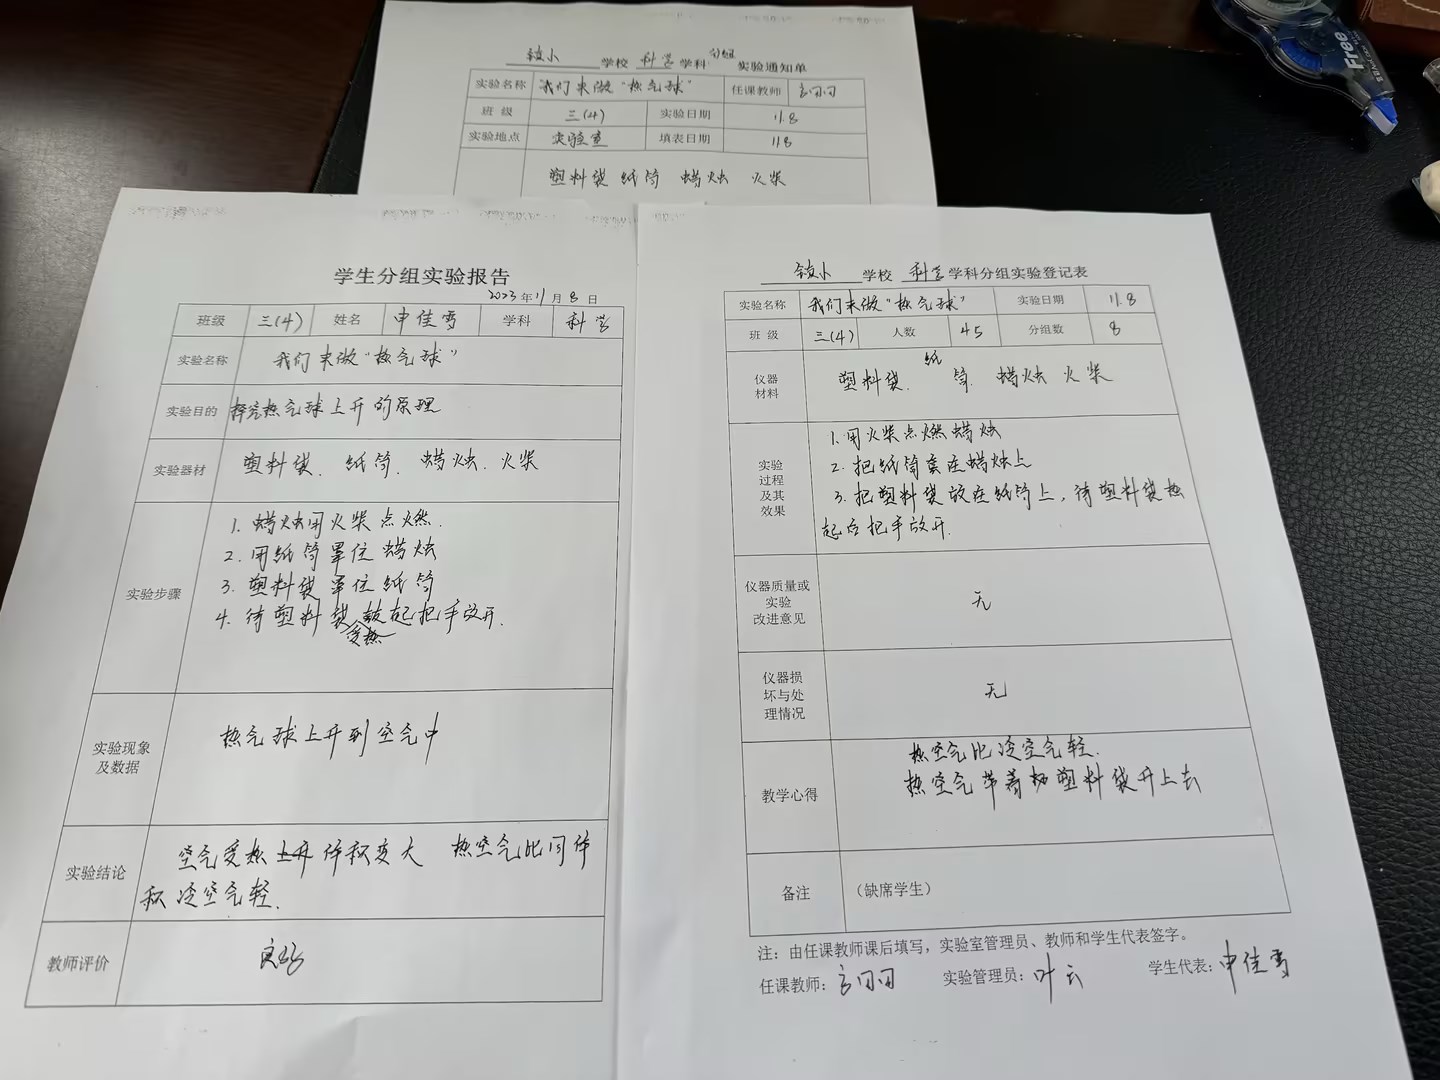 镇小 学校 科学 学科 分组 实验通知单
实验名称 我们来做“热气球” 任课教师
班 级 三(4) 实验日期 11.8
实验地点 实验室 填表日期 11.8
塑料袋 纸筒 蜡烛 火柴
学生分组实验报告
2023年11月8日
班级 三(4) 姓名 申佳雪 学科 科学
实验名称 我们来做“热气球”
实验目的 探究热气球上升的原理
实验器材 塑料袋、纸筒、蜡烛、火柴
实验步骤
1. 蜡烛用火柴点燃.
2. 用纸筒罩住蜡烛
3. 塑料袋罩住纸筒
4. 待塑料袋受热鼓起把手放开.
实验现象及数据
热气球上升到空气中
实验结论
空气受热上升体积变大 热空气比同体
积冷空气轻.
教师评价 良好
镇小 学校 科学 学科分组实验登记表
实验名称 我们来做“热气球” 实验日期 11.8
班 级 三(4) 人数 45 分组数 8
仪器材料 塑料袋、纸筒、蜡烛 火柴
实验过程及其效果
1. 用火柴点燃蜡烛
2. 把纸筒套在蜡烛上
3. 把塑料袋放在纸筒上,待塑料袋热
起后把手放开.
仪器质量或实验改进意见 无
仪器损坏与处理情况 无
教学心得
热空气比冷空气轻.
热空气带着塑料袋升上去
备注 (缺席学生)
注:由任课教师课后填写,实验室管理员、教师和学生代表签字。
任课教师: 实验管理员:叶云 学生代表:申佳雪
Free